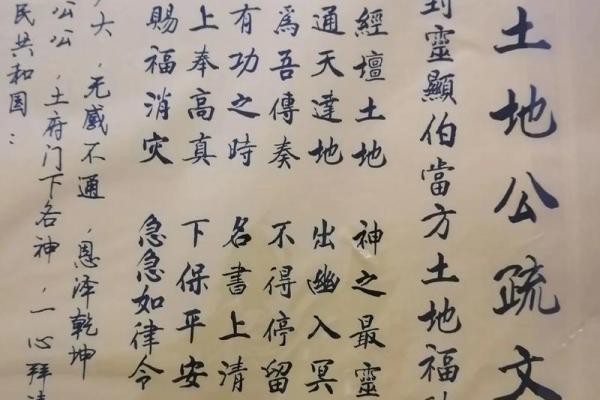 土地公疏文
到靈顯伯當方土地福
經壇土地 神之最靈
通天達地 出幽入冥
為吾傳奏 不得停留
有功之時 名書上清
上奉高真 下保平安
賜福消灾 急急如律令
大,无感不通,恩泽乾坤
公公,土府门下各神,一心拜
民共和国: